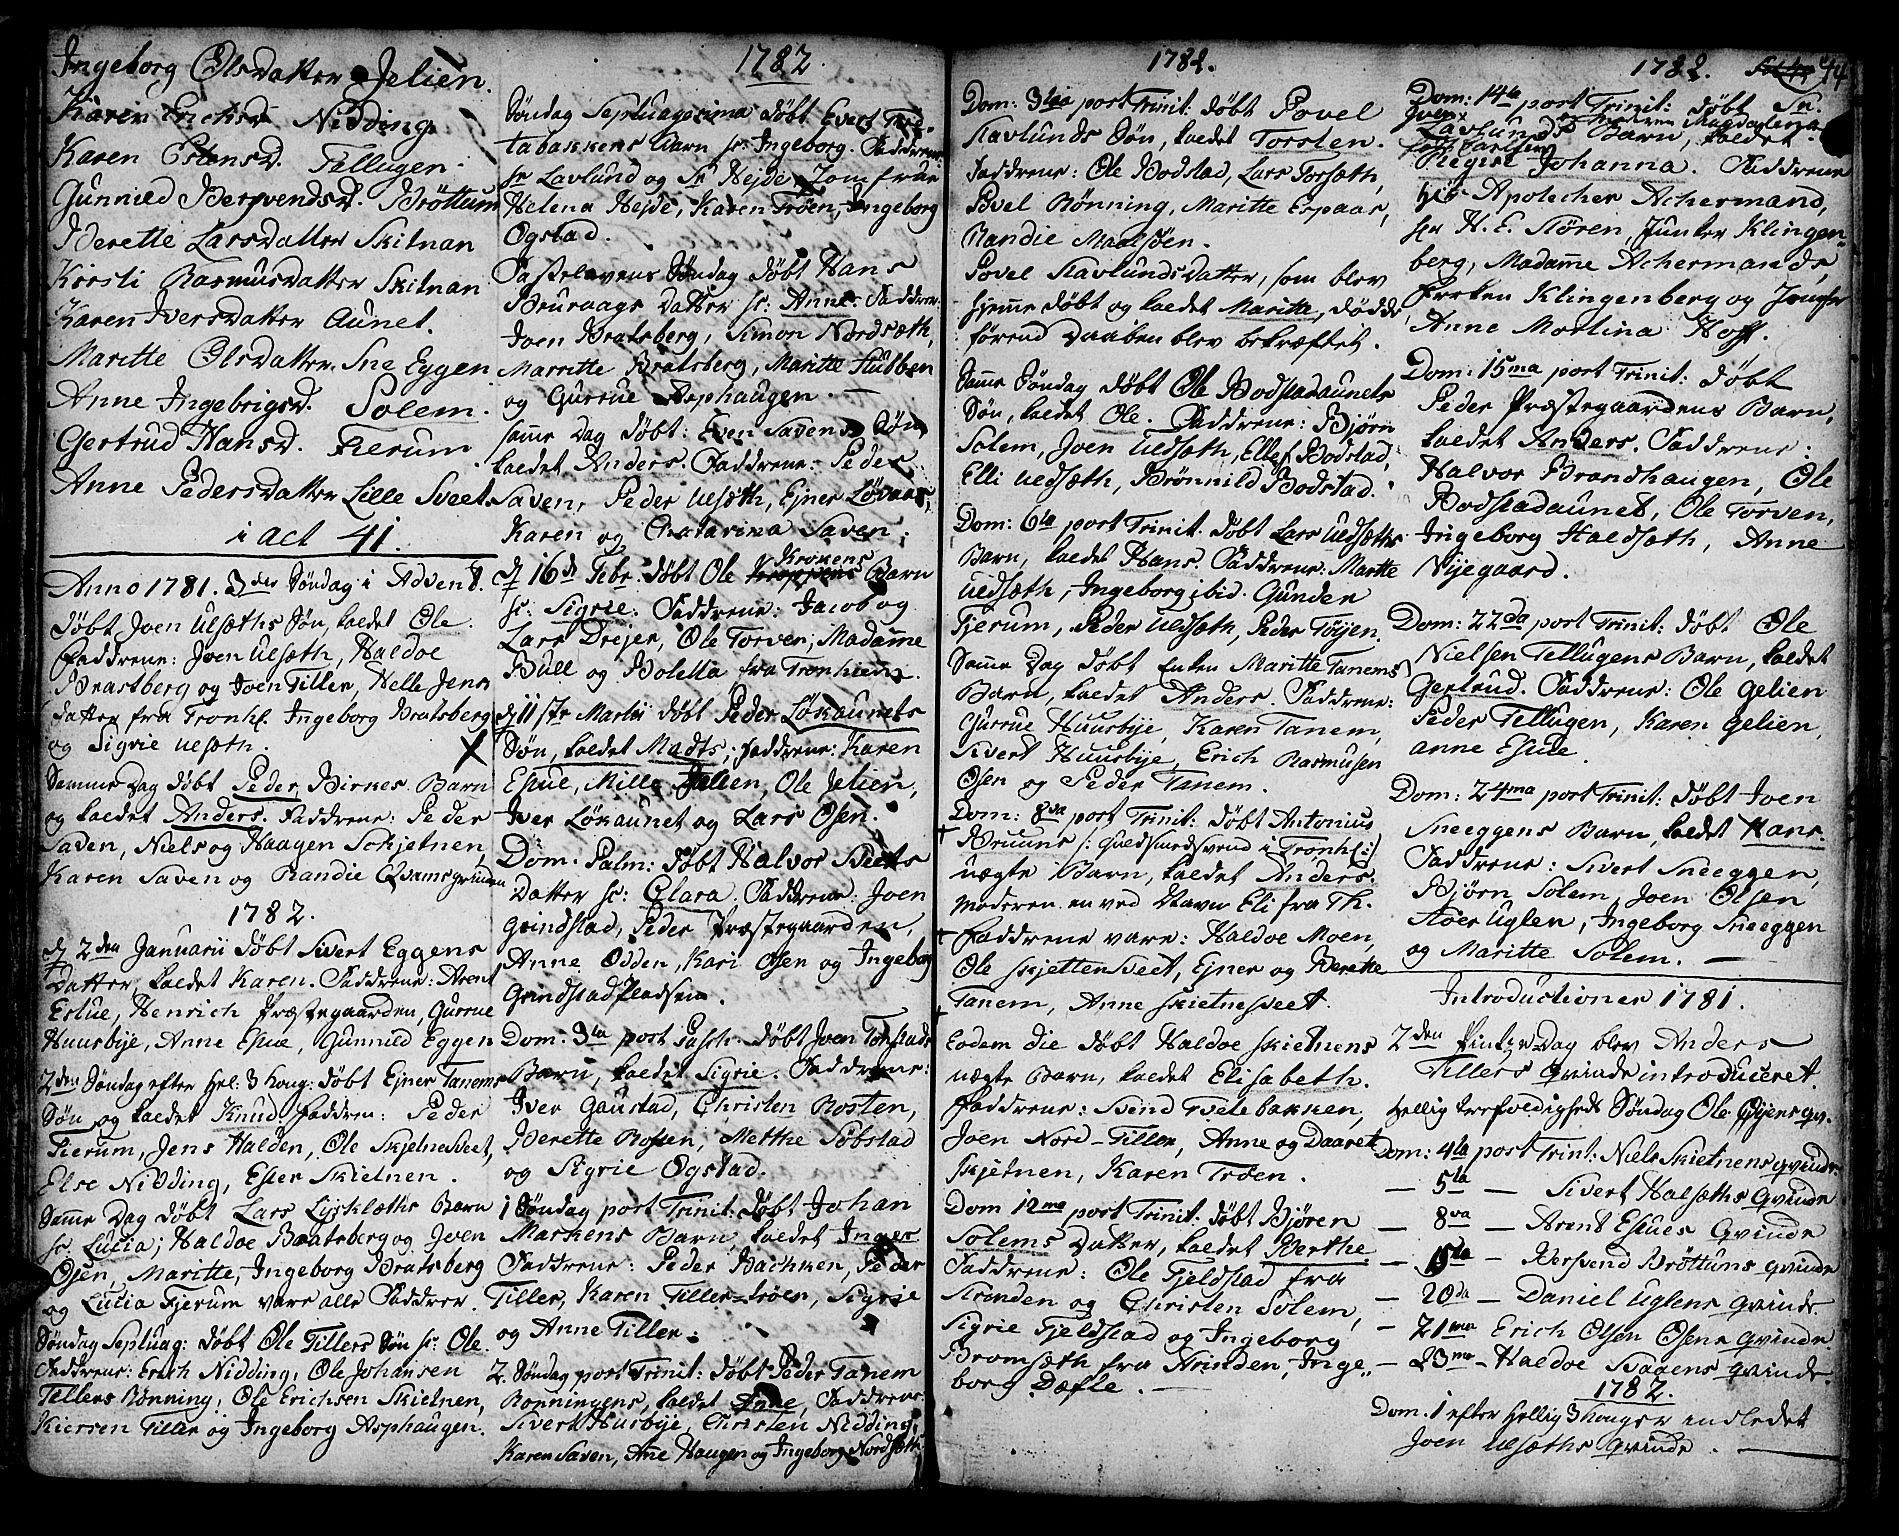 Ingeborg Olsdatter Jelien.
Karen Erichsd. Nidding
Karen Estensd. Tellugen.
Gunnild Bersvendsd. Bröttum
Berette Larsdatter Skitnan
Kirsti Rasmusdatter Skitnan
Karen Iversdatter Aunet.
Maritte Olsdatter Sne Eggen
Anne Ingebrigsd. Solem.
Gertrud Hansd. Fierum
Anne Pedersdatter Lille Sveet
i act 41.
Anno 1781. 3die Söndag i Advent.
döbt Joen Uesæths Sön, kaldet Ole.
Faddrene: Joen Uesæth, Haldoe
Bratsberg og Joen Tiller, Helle Jens
datter fra Tronhf. Ingeborg Bratsberg
og Sigrie Uesæth.
Samme Dag döbt Peder Birkes Barn
og kaldet Anders. Faddrene: Peder
Saven, Niels og Haagen Schjetnen,
Karen Saven og Randie Qvamsgrinden
1782.
d 2den Januarii döbt Sivert Eggens
Datter, kaldet Karen. Faddrene: Arent
Estue, Henrich Præstegaarden, Gurrue
Huusbije, Anne Estue, Gunnild Eggen
2den Söndag efter Hel: 3 Kong: döbt Ejner Tanems
Sön og kaldet Knud. Faddren: Peder
Fierum, Jens Halden, Ole Skjetnesveet,
Else Nidding, Ester Skietnen.
Samme Dag döbt Lars Lysklæths Barn
sc. Lucia; Haldoe Bratsberg og Joen
Osen, Maritte, Ingeborg Bratsberg
og Lucia Fjerum vare alle Faddrer.
Söndag Septuag: döbt Ole Tillers Sön sc. Ole.
Faddrene: Erich Nidding, Ole Johansen
Tellers Rönning, Ole Erichsen Skietnen,
Kiersten Tiller og Ingeborg Asphaugen.
1782.
Söndag Septuagesima döbt Evert Tvee-
tabakkens Barn sc. Ingeborg. Faddrene:
Sr Lavlund og Sr Hejde, Jomfrue
Helena Hejde, Karen Tröen, Ingeborg
Ogstad.
Fastelavens Söndag döbt Hans
Beuraags Datter sc. Anne. Faddrer:
Joen Bratsberg, Simon Nordsæth,
Marritte Bratsberg, Maritte Stubben
og Gurrue Asphaugen.
samme Dag döbt: Even Savens Sön
kaldet Anders. Faddrene: Peder
Saven, Peder Uesæth, Ejner Lövaas,
Karen og Chatarina Saven.
d 16de Febr. döbt Ole Krokens Barn
sc: Sigrie. Faddrene: Jacob og
Lars Drejer, Ole Torven, Madamme
Bull og Boletta fra Tronhiem.
d 11ste Martii döbt Peder Lökaunets
Sön, kaldet Madts; Faddrene: Karen
Estue, Mille Jelien, Ole Jelien,
Iver Lökaunet og Lars Osen.
Dom. Palm: döbt Halvor Sveets
Datter sc: Clara. Faddrene: Joen
Grindstad, Peder Præstegaarden,
Anne Odden, Kari Osen og Ingeborg
Grindstad Pladsen.
Dom: 3tia post Pasch: döbt Joen Torstads
Barn, kaldet Sigrie. Faddrene:
Iver Gaustad, Christen Rosten,
Berette Rosten, Metthe Söbstad
og Sigrie Ogstad.
1 Söndag post Trinit: döbt Johan
Markens Barn, kaldet Inger
Faddrene: Peder Bachken, Peder
Tiller, Karen Tiller-tröen, Sigrie
og Anne Tiller.
2. Söndag post Trinit: döbt Peder Tanem
Rönningens, kaldet Anne, Faddrene:
Sivert Husbije, Christen Nidding,
Karen Saven, Ane Haugen og Ingeborg Nordsæth.
1782.
Dom: 3tia post Trinit: döbt Povel
Stavlunds Sön, kaldet Torsten.
Faddrene: Ole Bodstad, Lars Torsæth,
Povel Rönning, Maritte Espaas,
Randie Maalsöen.
Povel Stavlunds datter, som blev
hjemme döbt og kaldet Maritte, dödde
förend daaben blev bekræftet.
Samme Söndag döbt Ole Bodstadaunets
Sön, kaldet Ole. Faddrene: Björn
Solem, Joen Uedsæth, Ellef Bodstad,
Elli Uedsæth, Brönnild Bodstad.
Dom: 6ta post Trinit. döbt Lars Uedsæths
Barn, kaldet Hans. Faddrene: Marite
Uedsæth, Ingeborg ibid. Gunder
Fjerum, Peder Uedsæth, Peder Töyen.
Samme Dag döbt Enken Maritte Tanems
Barn, kaldet Anders. Faddrene:
Gurrue Huusbije, Karen Tanem,
Sivert Huusbije, Erich Rasmusen
Osen og Peder Tanem.
Dom: 8va post Trinit: döbt Antonius
Bruuns /: Guldsmedsvend i Tronhf:/
uægte Barn, kaldet Anders.
Moderen en ved Navn Eli fra Th.
Faddrene vare: Haldoe Moen,
Ole Skjettensveet, Ejner og Berette
Tanem, Anne Skietnesveet.
Eodem die döbt Haldoe Skietnens
uægte Barn, kaldet Elisabeth.
Faddrene: Svend Tvetebakken,
Joen Nord-Tiller, Anne og Daaret
Skjetnen, Karen Tröen.
Dom 12ma post Trinit: döbt Björen
Solems Datter, kaldet Berthe
Faddrene: Ole Fjeldstad fra
Strinden og Christen Solem,
Sigrie Fjeldstad og Ingeborg
Bromsæth fra Strinden, Inge-
borg Dæfle.
1782. 44
Dom: 14ta post Trinit: döbt Sr.
Lavlunds Barn, kaldet
Magdalena
Regist Johanna. Faddrene
Apolecher Achermand,
Hr H. E. Stören, Junker Klingen-
berg, Madamme Achermands,
Fröken Klingenberg og Jomfr
Anne Martina Hoff.
Dom: 15ma post Trinit: döbt
Peder Præstegaardens Barn,
kaldet Anders. Faddrene:
Halvor Brandhaugen, Ole
Bodstadaunet, Ole Torven,
Ingeborg Haldsæth, Anne
Nyegaard.
Dom: 22da post Trinit: döbt Ole
Nielsen Tellugens Barn, kaldet
Gertrud. Faddrene: Ole Gelien
Peder Tellugen, Karen Gelien,
Anne Estue.
Dom: 24ma post Trinit: döbt Joen
Sneeggens Barn, kaldet Hans.
Faddrene: Sivert Sneeggen,
Björn Solem, Joen Olsen
Stoer Uglen, Ingeborg Sneeggen
og Maritte Solem.
Introductioner 1781.
2den Pintze-Dag blev Anders
Tillers qvinde introduceret.
Hellig Trefoldigheds Söndag Ole Öyens qv.
Dom: 4ta post Trinit: Niels Skietnens qvinde.
— 5ta — Sivert Halsæths qvinde
— 8va — Arent Estues qvinde
— 15ta — Bersvend Bröttuns qvinde
— 20da — Daniel Uglens qvinde.
— 21ma Erich Olsen Osens qvinde.
— 23ma — Haldoe Bagens qvinde.
1782.
Dom. 1 efter Hellig 3 Konger indledet
Joen Uesæths qvinde.